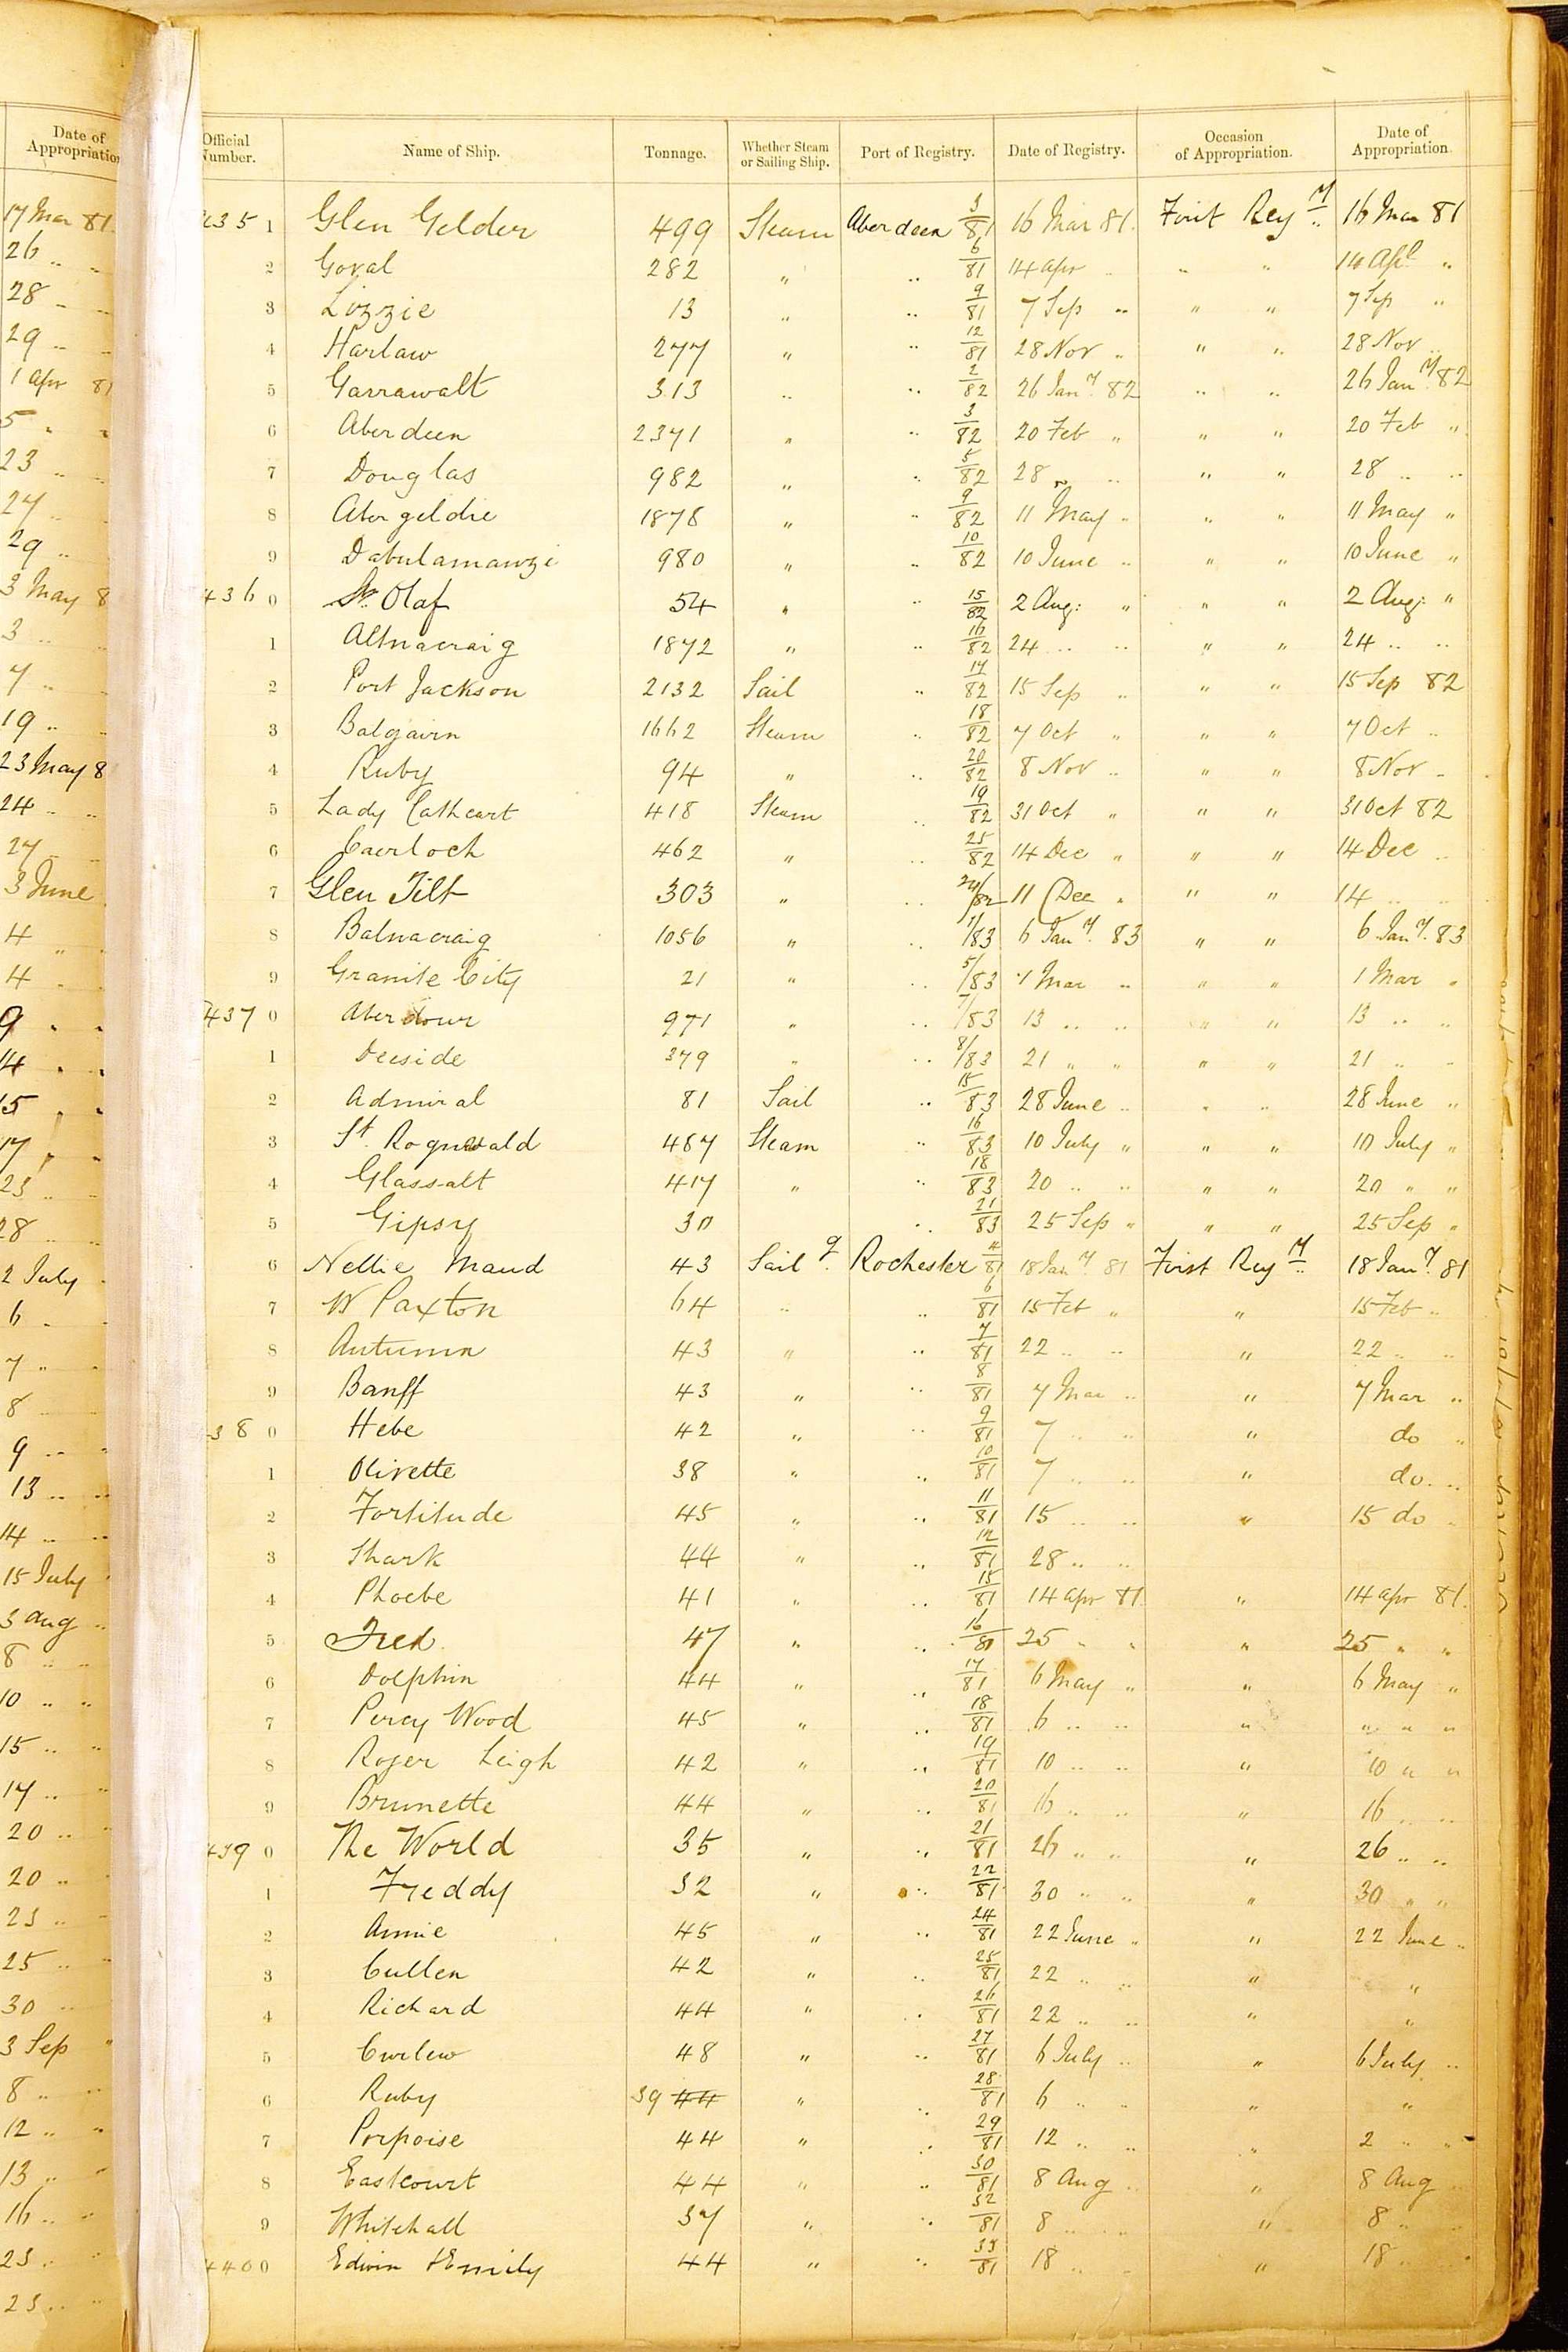 Date of Appropriation
17 Mar 81.
26 .. ..
28 .. ..
29 .. ..
1 Apr 81
5 " "
23 .. ..
27 ..
29 ..
3 May 8
3 ..
7 ..
19 ..
23 May 8
24 .. ..
27 ..
3 June
4 ..
4 ..
9 " "
14 " "
15 " "
17 " "
23 .. ..
28 .. ..
2 July
6 ..
7 ..
8
9 .. ..
13 .. ..
14 .. ..
15 July
3 Aug ..
8 .. ..
10 .. ..
15 .. ..
17 .. ..
20 .. ..
20 ..
23 ..
25 .. ..
30 ..
3 Sep "
8 .. ..
12 .. ..
13 .. ..
16 .. ..
23 ..
23 .. ..
Official Number. Name of Ship. Tonnage. Whether Steam or Sailing Ship. Port of Registry. Date of Registry. Occasion of Appropriation. Date of Appropriation.
435 1 Glen Gelder 499 Steam Aberdeen 3/81 16 Mar 81. First Regy .. 16 Mar 81
2 Goval 282 " .. 6/81 14 Apr .. " " 14 Apl "
3 Lizzie 13 " .. 9/81 7 Sep .. " " 7 Sep "
4 Harlaw 277 " .. 12/81 28 Nov .. " " 28 Nov ..
5 Garrawalt 313 " .. 2/82 26 Jany 82 " " 26 Jany 82
6 Aberdeen 2371 " .. 3/82 20 Feb " " " 20 Feb "
7 Douglas 982 " .. 5/82 28 " .. " " 28 .. ..
8 Abergeldie 1878 " .. 9/82 11 May " " " 11 May "
9 Dabulamanzi 980 " .. 10/82 10 June .. " " 10 June "
436 0 St. Olaf 54 " .. 15/82 2 Aug: " " " 2 Aug: "
1 Altnacraig 1872 " .. 16/82 24 .. .. " " 24 .. ..
2 Port Jackson 2132 Sail .. 17/82 15 Sep .. " " 15 Sep 82
3 Balgairn 1662 Steam .. 18/82 7 Oct " " " 7 Oct ..
4 Ruby 94 " .. 20/82 8 Nov .. " " 8 Nov ..
5 Lady Cathcart 418 Steam .. 19/82 31 Oct " " " 31 Oct 82
6 Caerloch 462 " .. 25/82 14 Dec " " " 14 Dec ..
7 Glen Tilt 303 " .. 24/82 11 Dec " " " 14 .. ..
8 Balnacraig 1056 " .. 1/83 6 Jany. 83 " " 6 Jany. 83
9 Granite City 21 " .. 5/83 1 Mar .. " " 1 Mar "
437 0 Aberdour 971 " .. 7/83 13 .. .. " " 13 .. ..
1 Deeside 379 " .. 8/83 21 " " " " 21 .. ..
2 Admiral 81 Sail .. 15/83 28 June .. " " 28 June ..
3 St. Rognvald 487 Steam .. 16/83 10 July " " " 10 July "
4 Glassalt 417 " .. 18/83 20 .. .. " " 20 " "
5 Gipsy 30 .. 21/83 25 Sep " " " 25 Sep "
6 Nellie Maud 43 Sailg. Rochester 4/81 18 Jany 81 First Regy .. 18 Jany. 81
7 W Paxton 64 .. .. 6/81 15 Feb " " 15 Feb ..
8 Autumn 43 " .. 7/81 22 .. .. " 22 .. ..
9 Banff 43 " .. 8/81 7 Mar .. " 7 Mar ..
38 0 Hebe 42 " .. 9/81 7 .. .. " do ..
1 Olivette 38 " .. 10/81 7 .. .. " do. ..
2 Fortitude 45 " .. 11/81 15 .. .. " 15 do ..
3 Shark 44 " .. 12/81 28 .. ..
4 Phoebe 41 " .. 15/81 14 Apr 81. " 14 Apr 81.
5 Fred 47 " .. 16/81 25 " " " 25 " "
6 Dolphin 44 " .. 17/81 6 May " " 6 May "
7 Percy Wood 45 " .. 18/81 6 .. .. " " " "
8 Roger Leigh 42 " .. 19/81 10 .. .. " 10 " "
9 Brunette 44 " .. 20/81 16 .. .. " 16 .. ..
439 0 The World 35 " .. 21/81 26 " .. " 26 .. ..
1 Freddy 32 " .. 22/81 30 .. .. " 30 " "
2 Annie 45 " .. 24/81 22 June " " 22 June ..
3 Cullen 42 " .. 25/81 22 .. .. " "
4 Richard 44 " .. 26/81 22 .. .. " "
5 Curlew 48 " .. 27/81 6 July .. " 6 July ..
6 Ruby 39 44 " .. 28/81 6 .. .. " "
7 Porpoise 44 " .. 29/81 12 .. .. " 2 .. "
8 Eastcourt 44 " .. 30/81 8 Aug .. " 8 Aug ..
9 Whitehall 37 " .. 32/81 8 .. .. " 8 .. ..
440 0 Edwin & Emily 44 " .. 33/81 18 .. .. " 18 .. ..